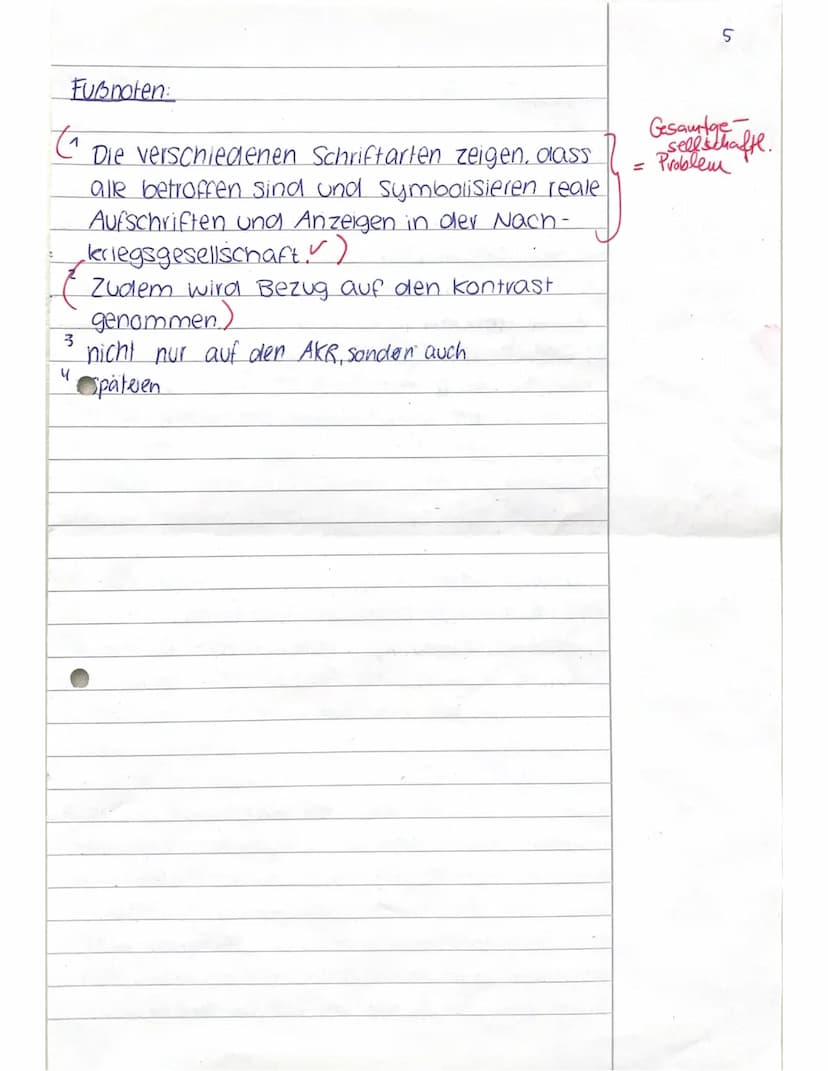 5
Fußnoten:
1 Die verschiedenen Schriftarten zeigen, dass
alle betroffen sind und symbolisieren reale
Aufschriften und Anzeigen in der Nach-
kriegsgesellschaft. ✓)
2 Zudem wird Bezug auf den Kontrast
genommen.)
3 nicht nur auf den AKR, sonder auch
4 späteren
Gesamtge-
sellschaftl.
= Problem